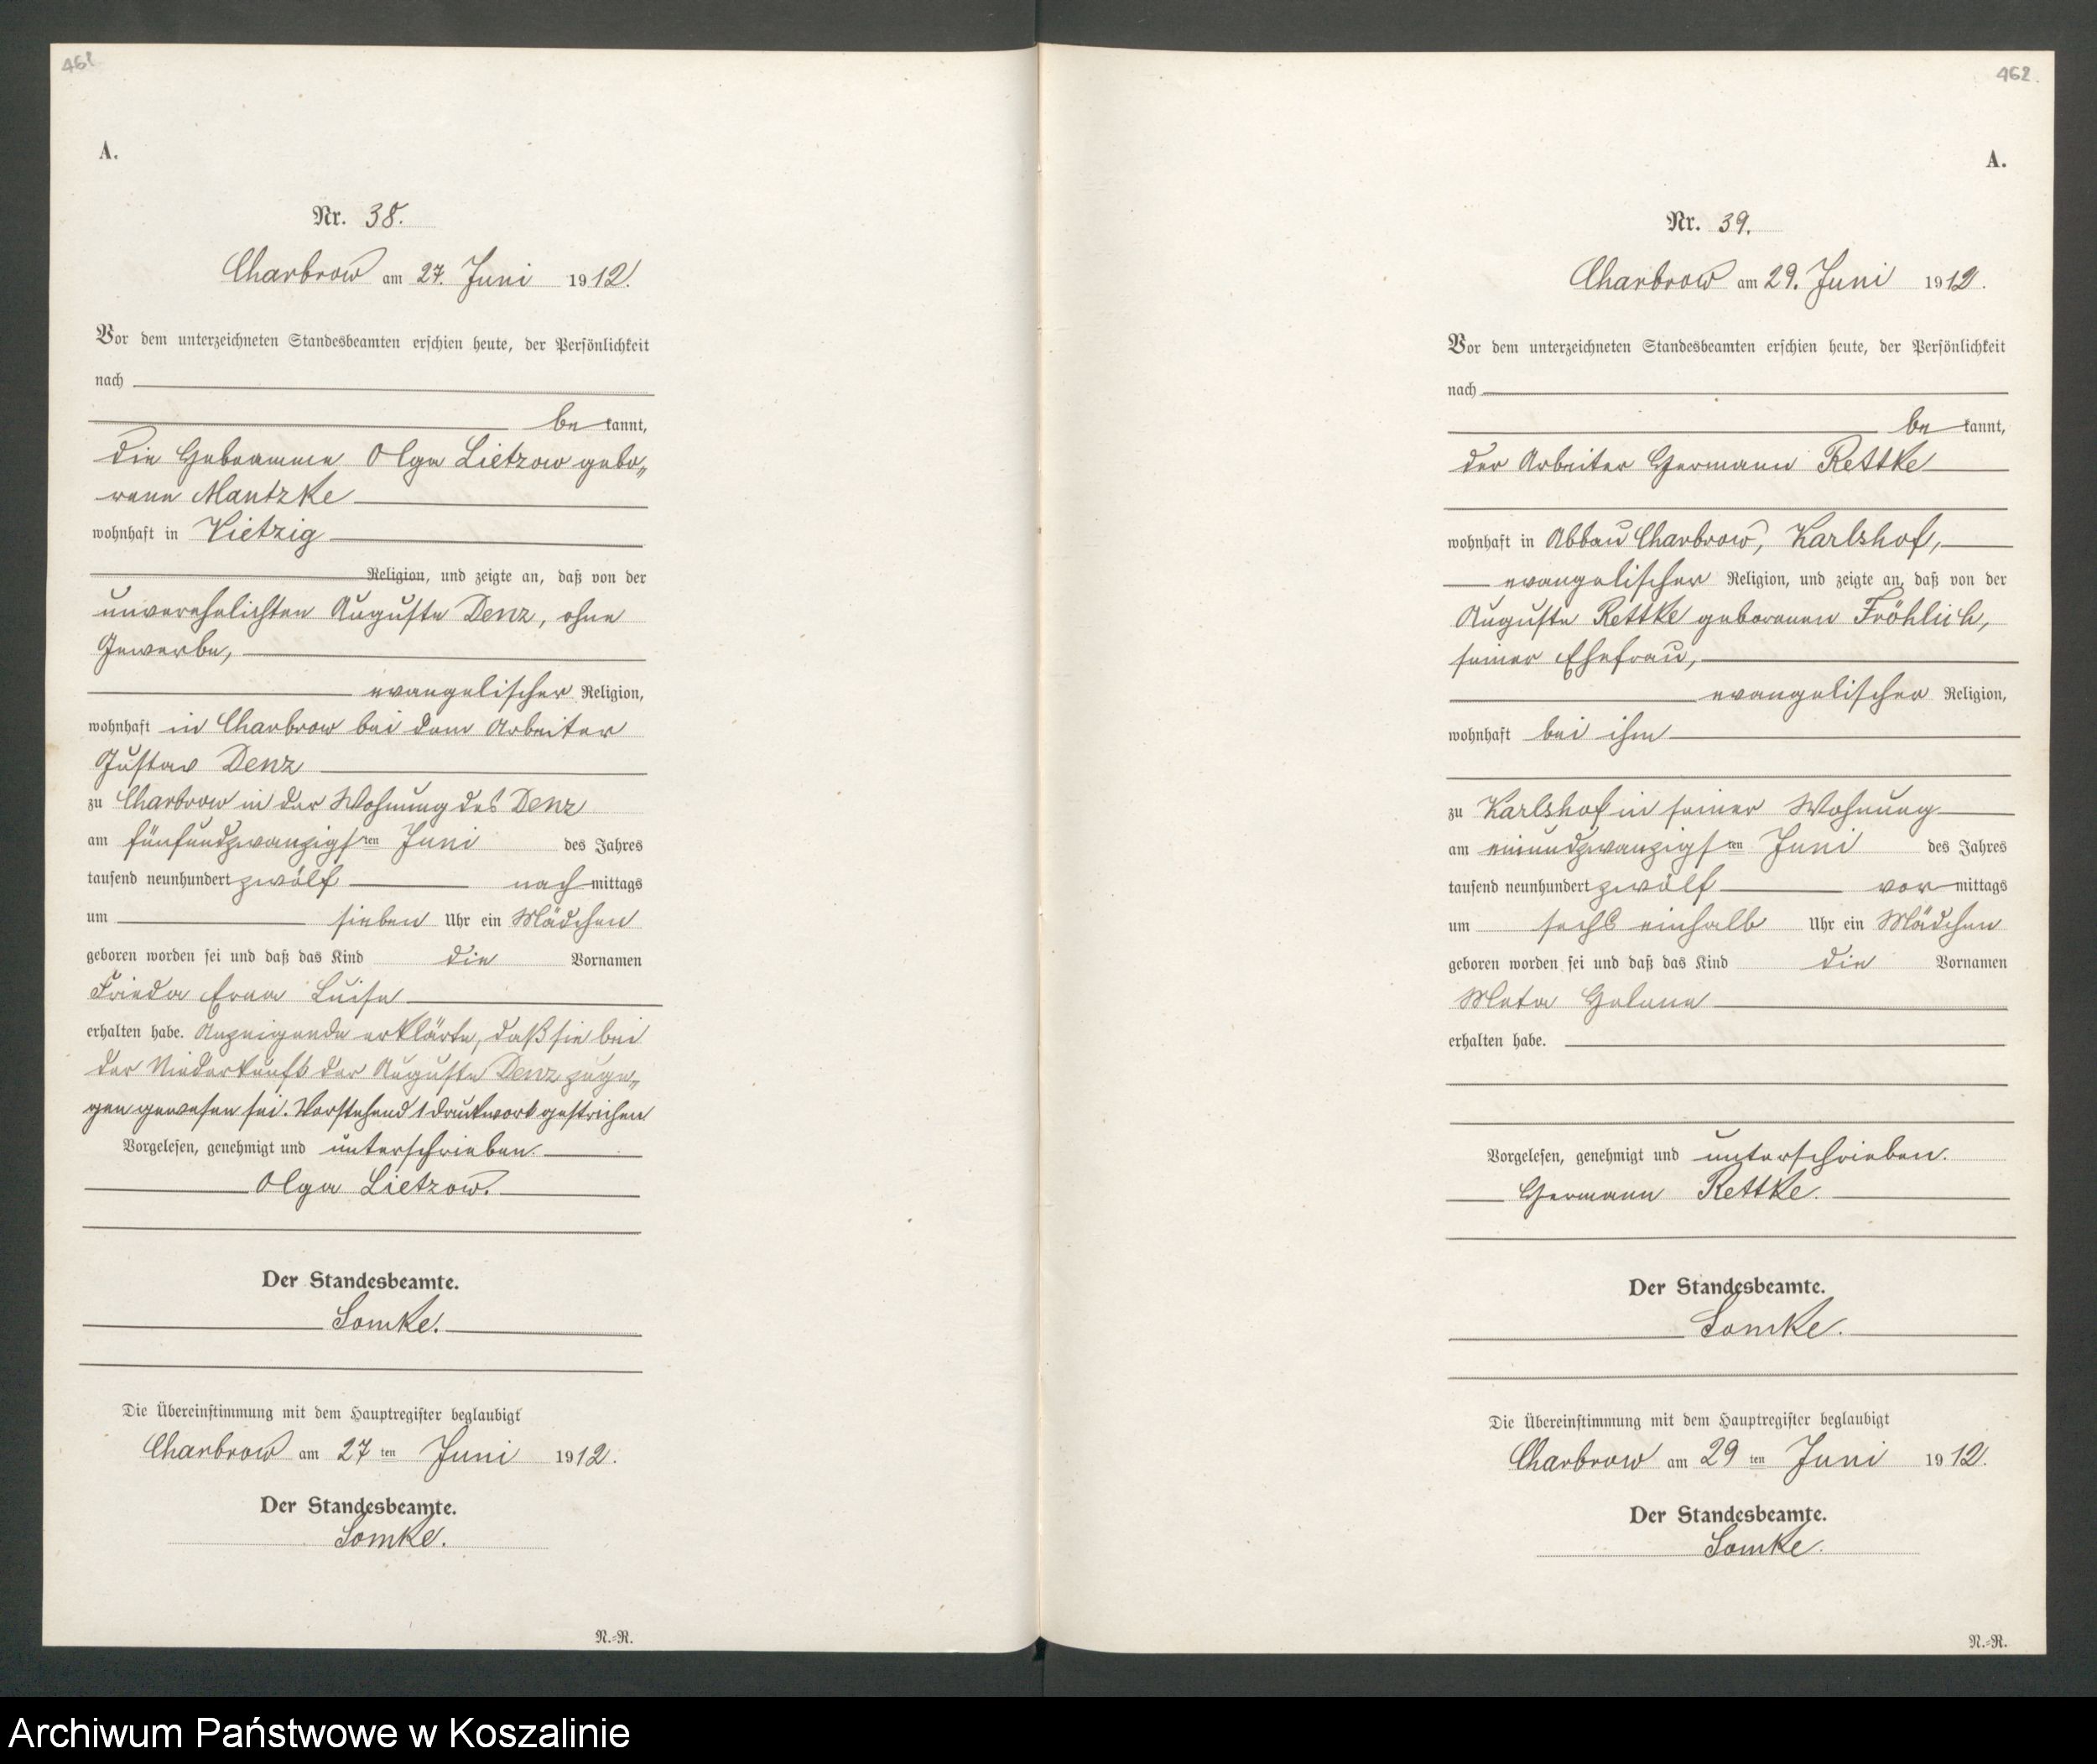 461
A.
Nr. 38.
Charbrow am 27. Juni 1912.
Vor dem unterzeichneten Standesbeamten erschien heute, der Persönlichkeit
nach
be kannt,
die Hebamme Olga Lietzow gebo„
rene Mantzke
wohnhaft in Vietzig
Religion, und zeigte an, daß von der
unverehelichten Auguste Denz, ohne
Gewerbe,
evangelischer Religion,
wohnhaft in Charbrow bei dem Arbeiter
Gustav Denz
zu Charbrow in der Wohnung des Denz
am fünfundzwanzigsten Juni des Jahres
tausend neunhundert zwölf nachmittags
um sieben Uhr ein Mädchen
geboren worden sei und daß das Kind die Vornamen
Frieda Erna Luise
erhalten habe. Anzeigende erklärte, daß sie bei
der Niederkunft der Auguste Denz zuge„
gen gewesen sei. Vorstehend 1 Druckwort gestrichen
Vorgelesen, genehmigt und unterschrieben.
Olga Lietzow.
Der Standesbeamte.
Somke.
Die Übereinstimmung mit dem Hauptregister beglaubigt
Charbrow am 27 ten Juni 1912.
Der Standesbeamte.
Somke.
N.-R.
462.
A.
Nr. 39.
Charbrow am 29. Juni 1912.
Vor dem unterzeichneten Standesbeamten erschien heute, der Persönlichkeit
nach
be kannt,
der Arbeiter Hermann Rettke
wohnhaft in Abbau Charbrow, Karlshof,
evangelischer Religion, und zeigte an, daß von der
Auguste Rettke geborenen Fröhlich,
seiner Ehefrau,
evangelischer Religion,
wohnhaft bei ihm
zu Karlshof in seiner Wohnung
am einundzwanzigsten Juni des Jahres
tausend neunhundert zwölf vormittags
um sechs einhalb Uhr ein Mädchen
geboren worden sei und daß das Kind die Vornamen
Meta Helene
erhalten habe.
Vorgelesen, genehmigt und unterschrieben.
Hermann Rettke.
Der Standesbeamte.
Somke.
Die Übereinstimmung mit dem Hauptregister beglaubigt
Charbrow am 29 ten Juni 1912.
Der Standesbeamte.
Somke.
N.-R.
Archiwum Państwowe w Koszalinie